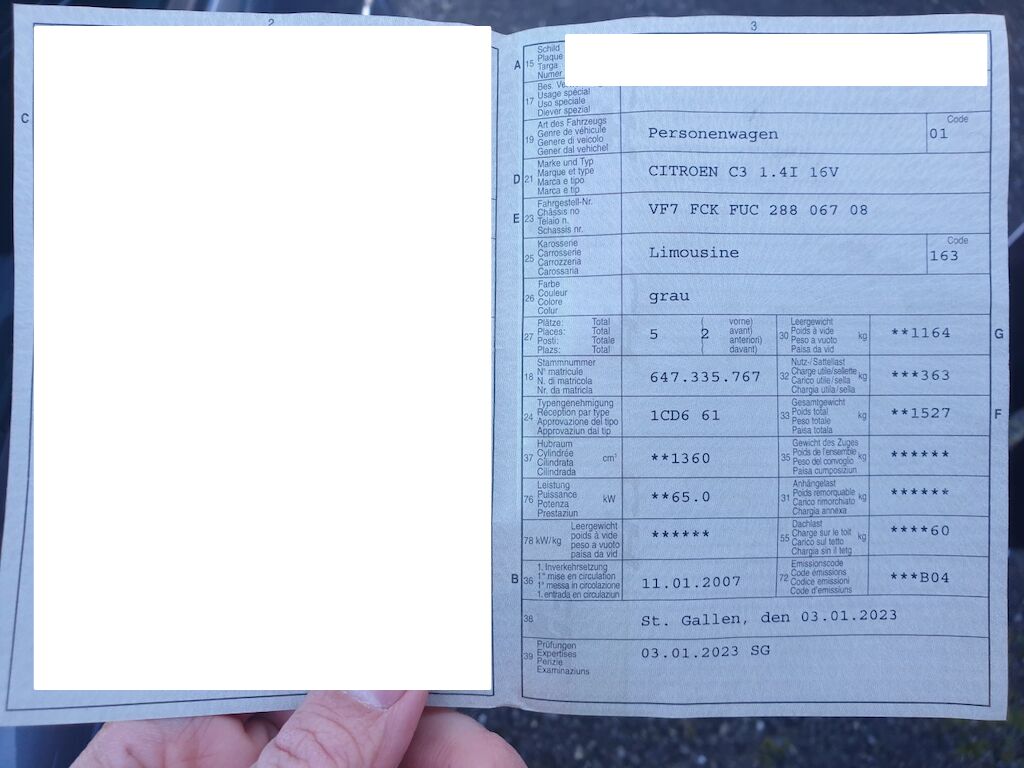 2
3
C
A 15 Schild
Plaque
Targa
Numer
17 Bes.
Usage spécial
Uso speciale
Diever spezial
19 Art des Fahrzeugs
Genre de véhicule
Genere di veicolo
Gener dal vehichel
Personenwagen
Code
01
D 21 Marke und Typ
Marque et type
Marca e tipo
Marca e tip
CITROEN C3 1.4I 16V
E 23 Fahrgestell-Nr.
Châssis no
Telaio n.
Schassis nr.
VF7 FCK FUC 288 067 08
25 Karosserie
Carrosserie
Carrozzeria
Carossaria
Limousine
Code
163
26 Farbe
Couleur
Colore
Colur
grau
27 Plätze: Total
Places: Total
Posti: Totale
Plazs: Total
5 2
( vorne)
( avant)
( anteriori)
( davant)
30 Leergewicht
Poids à vide
Peso a vuoto
Paisa da vid
kg
**1164
G
18 Stammnummer
N° matricule
N. di matricola
Nr. da matricla
647.335.767
32 Nutz-/Sattellast
Charge utile/sellette
Carico utile/sella
Chargia utila/sella
kg
***363
24 Typengenehmigung
Réception par type
Approvazione del tipo
Approvaziun dal tip
1CD6 61
33 Gesamtgewicht
Poids total
Peso totale
Paisa totala
kg
**1527
F
37 Hubraum
Cylindrée
Cilindrata
Cilindrada
cm³
**1360
35 Gewicht des Zuges
Poids de l'ensemble
Peso del convoglio
Paisa cumposiziun
kg
******
76 Leistung
Puissance
Potenza
Prestaziun
kW
**65.0
31 Anhängelast
Poids remorquable
Carico rimorchiato
Chargia annexa
kg
******
78 kW/kg
Leergewicht
poids à vide
peso a vuoto
paisa da vid
******
55 Dachlast
Charge sur le toit
Carico sul tetto
Chargia sin il tetg
kg
****60
B 36 1. Inverkehrsetzung
1re mise en circulation
1a messa in circolazione
1. entrada en circulaziun
11.01.2007
72 Emissionscode
Code émissions
Codice emissioni
Code d'emissiuns
***B04
38 St. Gallen, den 03.01.2023
39 Prüfungen
Expertises
Perizie
Examinaziuns
03.01.2023 SG